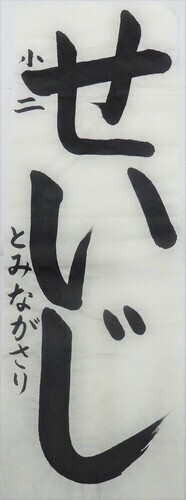 せいじ
小二
とみながさり